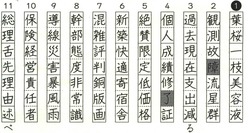 1 葉桜一枝美容液
2 観測故障流星群
3 過去現在支出減る
4 個人成績修了証
5 絶賛限定低価格
6 新築快適寄宿舎
7 混雑評判銅版画
8 幹部態度非常識
9 導線災害暴風雨
10 保険経営責任者
11 総理舌先理由述べ